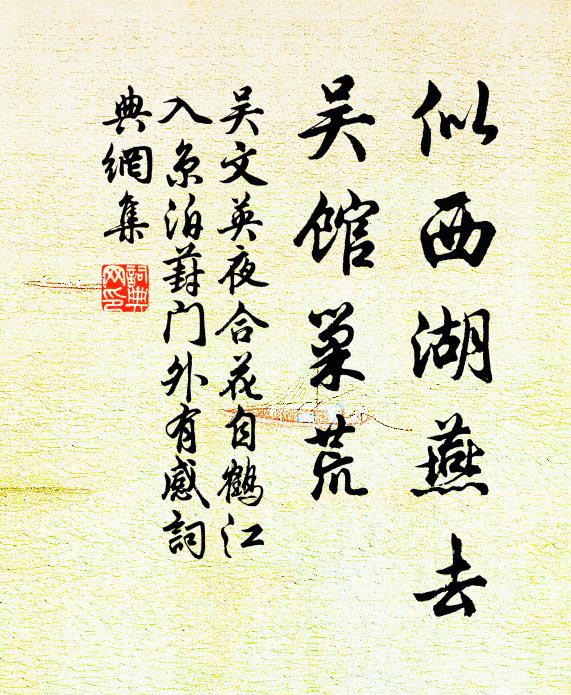 似西湖燕去
吴馆巢荒
吴文英夜合花自鹤江
入京泊葑门外有感词
典網集
詞典
网印